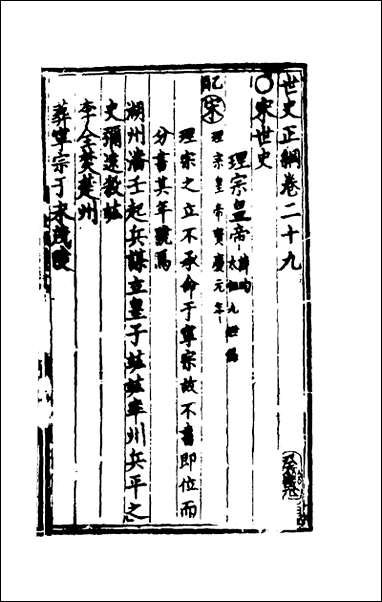 世史正綱卷二十九
○宋世史
理宗皇帝
宋
理宗皇帝寶慶元年
理宗之立不承命于寧宗故不書即位而
分書其年號焉
湖州潘壬起兵謀立皇子竑竑率州兵平之
史彌遠殺竑
李全焚楚州
葬寧宗于永茂陵